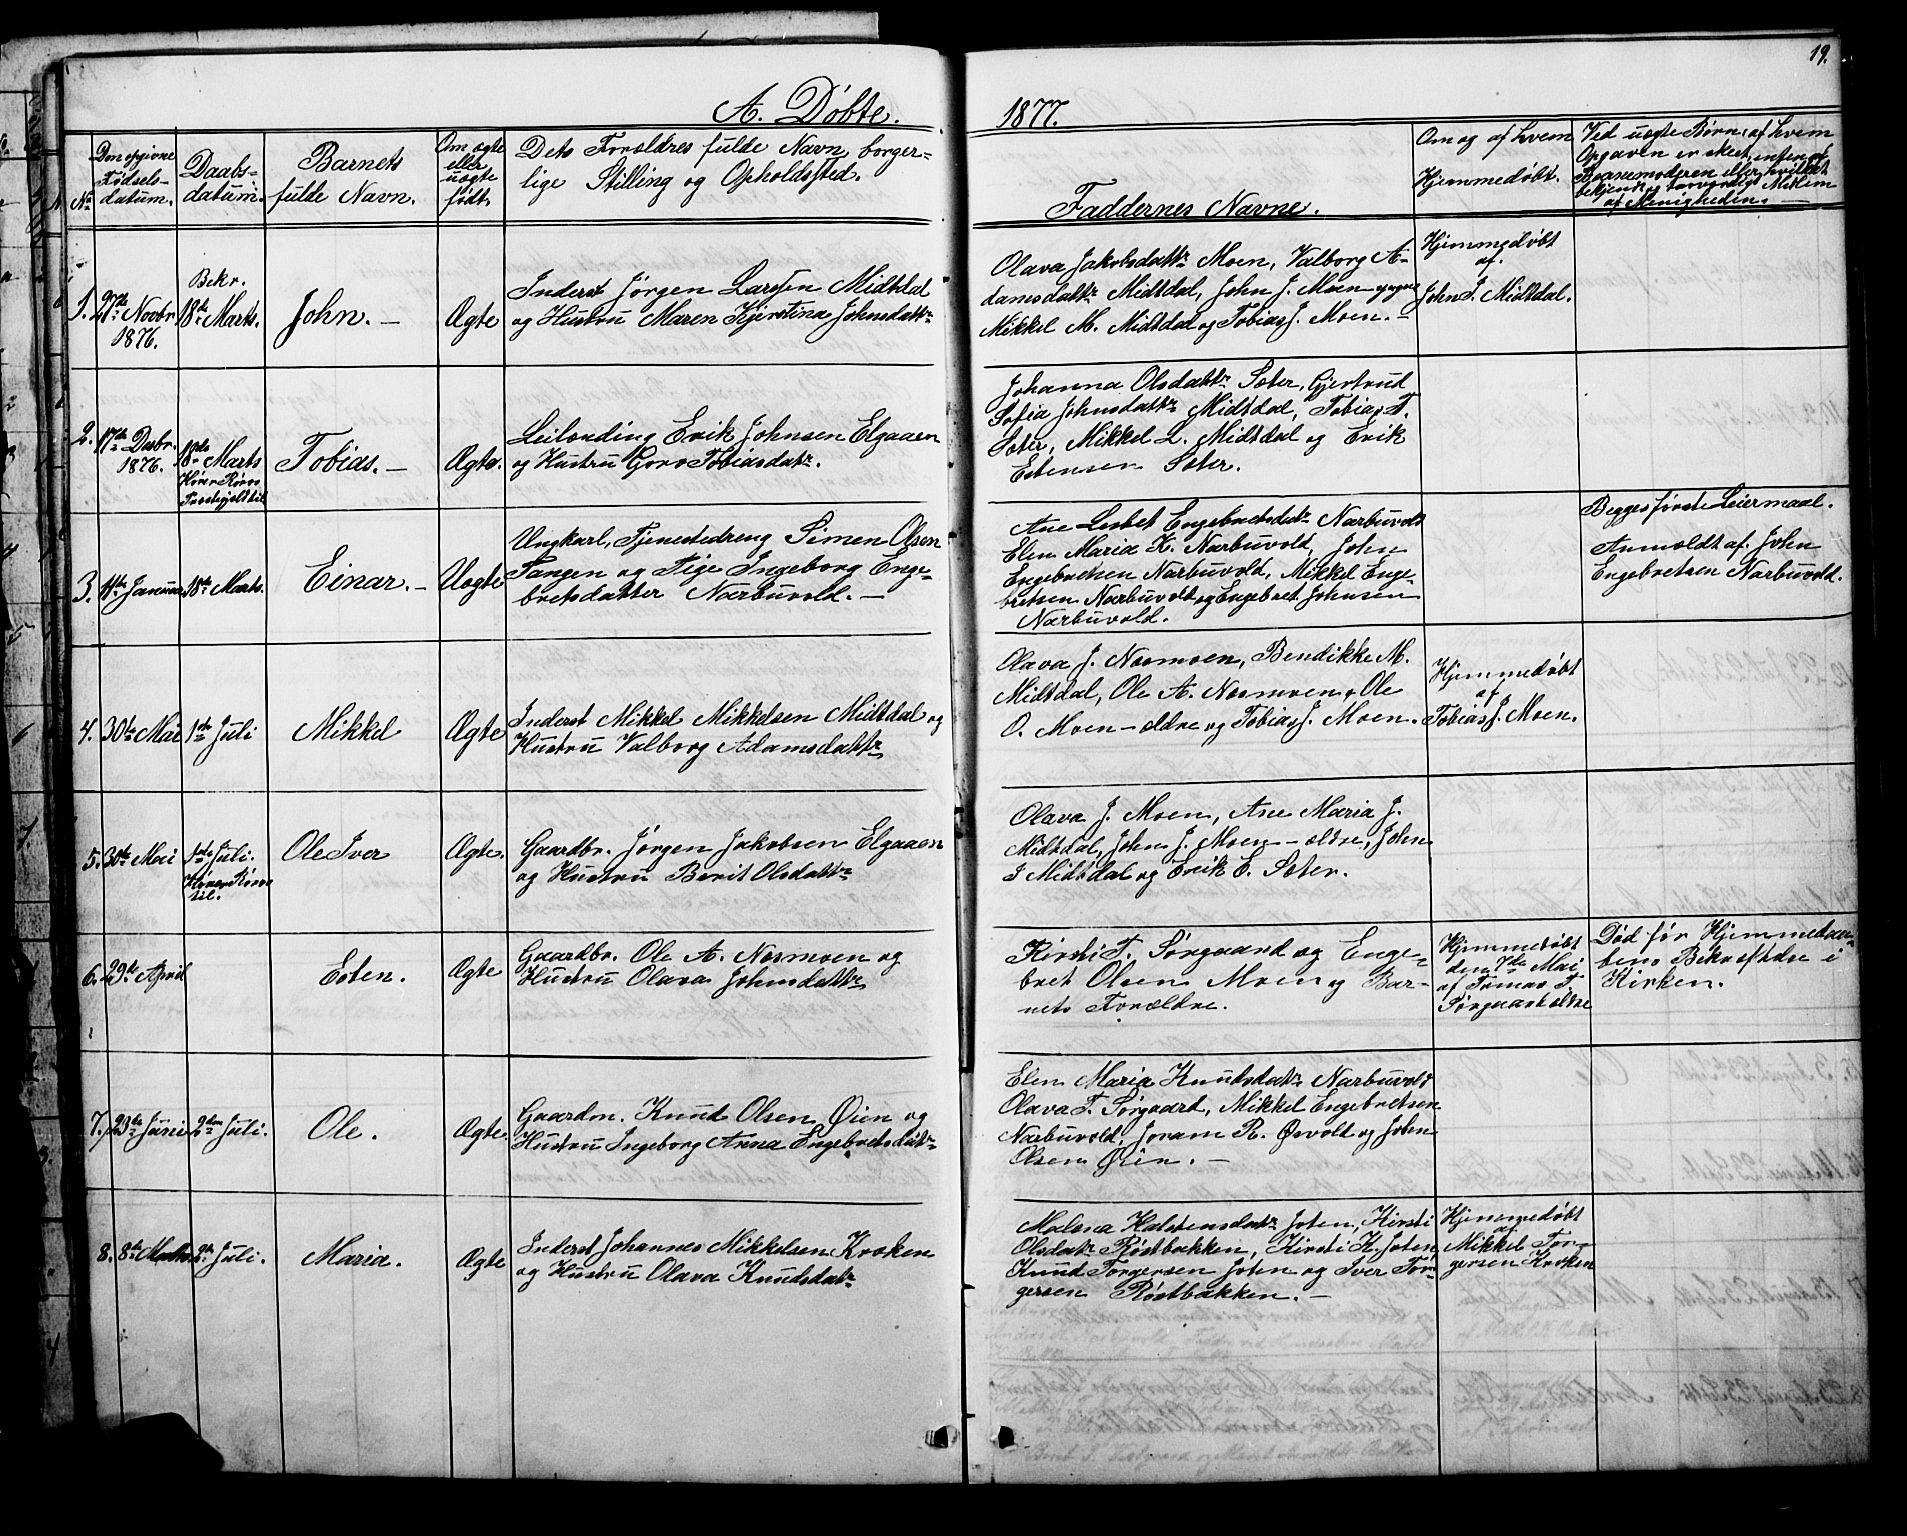 19.
A. Døbte. 1877.
No
Den opgivne Fødsels-datum.
Daabs-datum.
Barnets fulde Navn.
Om ægte eller uægte født.
Dets Forældres fulde Navn, borger-
lige Stilling og Opholdssted.
Faddernes Navne.
Om og af hvem
Hjemmedøbt.
Ved uægte Børn, af hvem
Opgaven er skeet, enten af
Barnemoderen eller hvilket
bekjendt og troværdigt Medlem
af Menigheden.
1. 27de Novbr. 1876.
Bekr. 18de Marts.
John. —
Ægte
Inderst Jørgen Larsen Midtdal
og Hustru Maren Kjerstina Johnsdattr
Olava Jakobsdattr Moen, Valborg A-
damsdattr Midtdal, John J. Moen yngre
Mikkel M. Midtdal og Tobias J. Moen. —
Hjemmedøbt
af
John J. Midtdal.
2. 17de Decbr. 1876.
18de Marts
Hører Røros
Præstegjeld til
Tobias. —
Ægte.
Leilænding Erik Johnsen Elgaaen
og Hustru Goro Tobiasdatr.
Johanna Olsdattr Sæter, Gjertrud
Sofia Johnsdattr Midtdal, Tobias T.
Sæter, Mikkel L. Midtdal og Erik
Estensen Sæter.
3. 11te Januar
18de Marts.
Einar. —
Uægte
Ungkarl, Tjenestedreng Simen Olsen
Tangen og Pige Ingeborg Enge-
bretsdatter Narbuvold. —
Ane Lisbet Engebretsdatr Narbuvold
Elen Maria K. Narbuvold, John
Engebretsen Narbuvold, Mikkel Enge-
bretsen Narbuvold og Engebret Johnsen
Narbuvold.
Begges første Leiermaal.
Anmeldt af John
Engebretsen Narbuvold.
4. 30te Mai
1ste Juli
Mikkel
Ægte
Inderst Mikkel Mikkelsen Midtdal og
Hustru Valborg Adamsdattr
Olava J. Nesmoen, Bendikke M.
Midtdal, Ole A. Nesmoen, Ole
O. Moen — ældre og Tobias J. Moen.
Hjemmedøbt
af
Tobias J. Moen.
5. 30te Mai
1ste Juli.
Hører Røros
til.
Ole Iver
Ægte.
Gaardbr. Jørgen Jakobsen Elgaaen
og Hustru Berit Olsdattr
Olava J. Moen, Ane Maria J.
Midtdal, John J. Moen — ældre, John
J Midtdal og Erik E. Sæter.
6. 29de April
Esten.
Ægte
Gaardbr. Ole A. Nesmoen og
Hustru Olava Johnsdattr
Kirsti T. Sørgaard og Enge-
bret Olsen Moen og Bar-
nets Forældre.
Hjemmedøbt
den 7de Mai
af Tomas T.
Sørgaard ældre
Død før Hjemmedaa-
bens Bekræftelse i
Kirken.
7. 23de Juni
2den Juli.
Ole.
Ægte.
Gaardm. Knud Olsen Øien og
Hustru Ingeborg Anna Engebretsdatr
Elen Maria Knudsdatr Narbuvold
Olava T. Sørgaard, Mikkel Engebretsen
Narbuvold, Joram R. Øsvold og John
Olsen Øien. —
8. 8de Marts
2den Juli.
Maria.
Ægte
Inderst Johannes Mikkelsen Kroken
og Hustru Olava Knudsdatr
Malena Halstensdatr Joten, Kirsti
Olsdatr Røstbakken, Kirsti K. Joten,
Knud Torgersen Joten og Iver Tor-
gersen Røstbakken. —
Hjemmedøbt
af
Mikkel Tor-
gersen Kroken